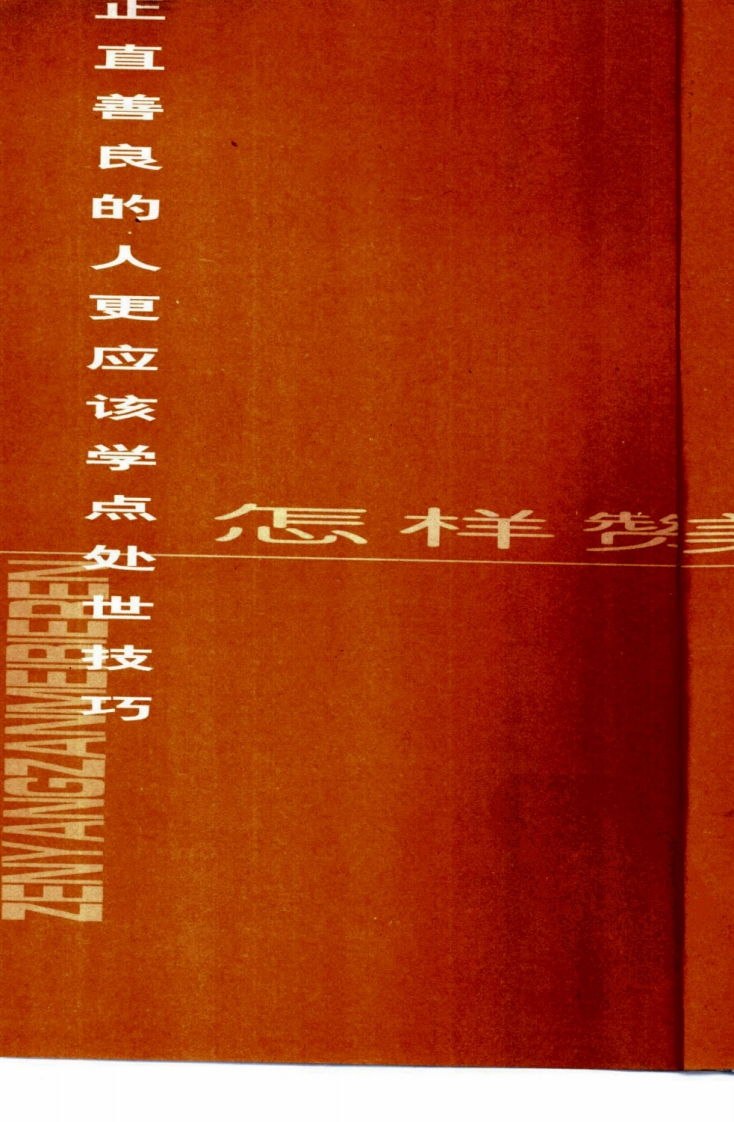 正直善良的人更应该学点处世技巧
怎样
ZENYANGZANMEIBIEREN